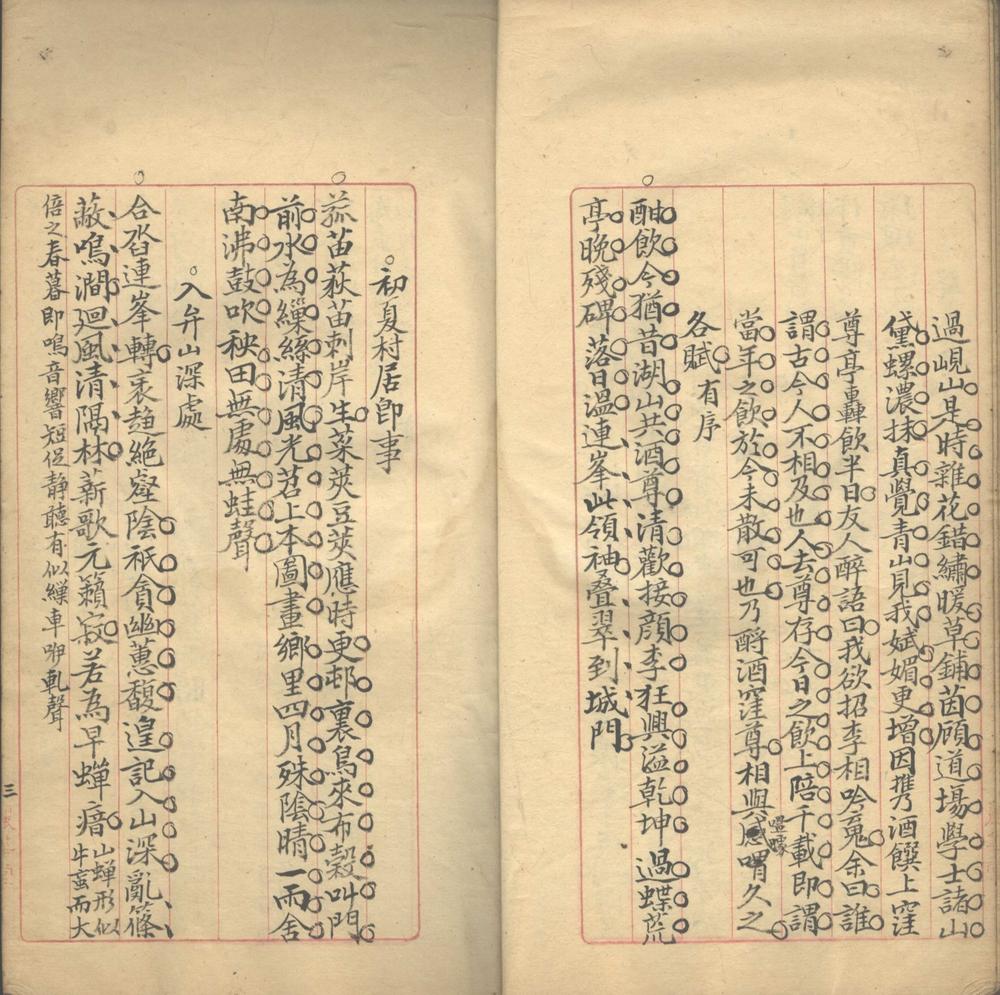 過峴山是時雜花錯繡暖草鋪茵顧道場學士諸山
黛螺濃抹真覺青山見我嫵媚更增因攜酒饌上窪
尊亭轟飲半日友人醉語曰我欲招李相吟魂余曰誰
謂古今人不相及也人去尊存今日之飲上陪千載即謂
當年之飲於今未散可也乃酹酒窪尊相與感喟久之
噫嚱
各賦有序
酣飲今猶昔湖山共酒尊清歡接顏李狂興溢乾坤過蝶荒
亭晚殘碑落日溫連峯此領袖叠翠到城門
初夏村居即事
菰苗荻苗刺岸生菜莢豆莢應時更邨裏鳥來布穀叫門
前水為繅絲清風光苕上本圖畫鄉里四月殊陰晴一雨舍
南沸鼓吹秧田無處無蛙聲
入弁山深處
合沓連峯轉衺趨絕壑陰祇貪幽蕙馥遑記入山深亂篠
蔽鳴澗廻風清隔林薪歌元籟寂若為早蟬瘖山蟬形似牛䖟而大
倍之春暮即鳴音響短促静聽有似繅車咿軋聲
三